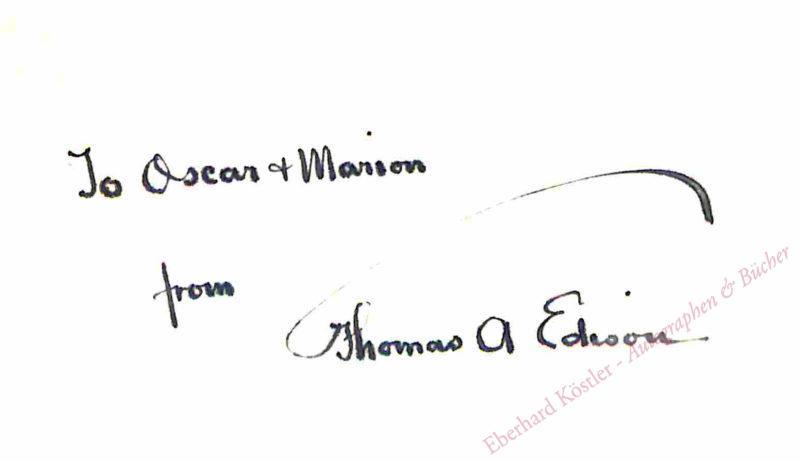 To Oscar + Marion
from
Thomas A Edison
Eberhard Köstler - Autographen & Bücher